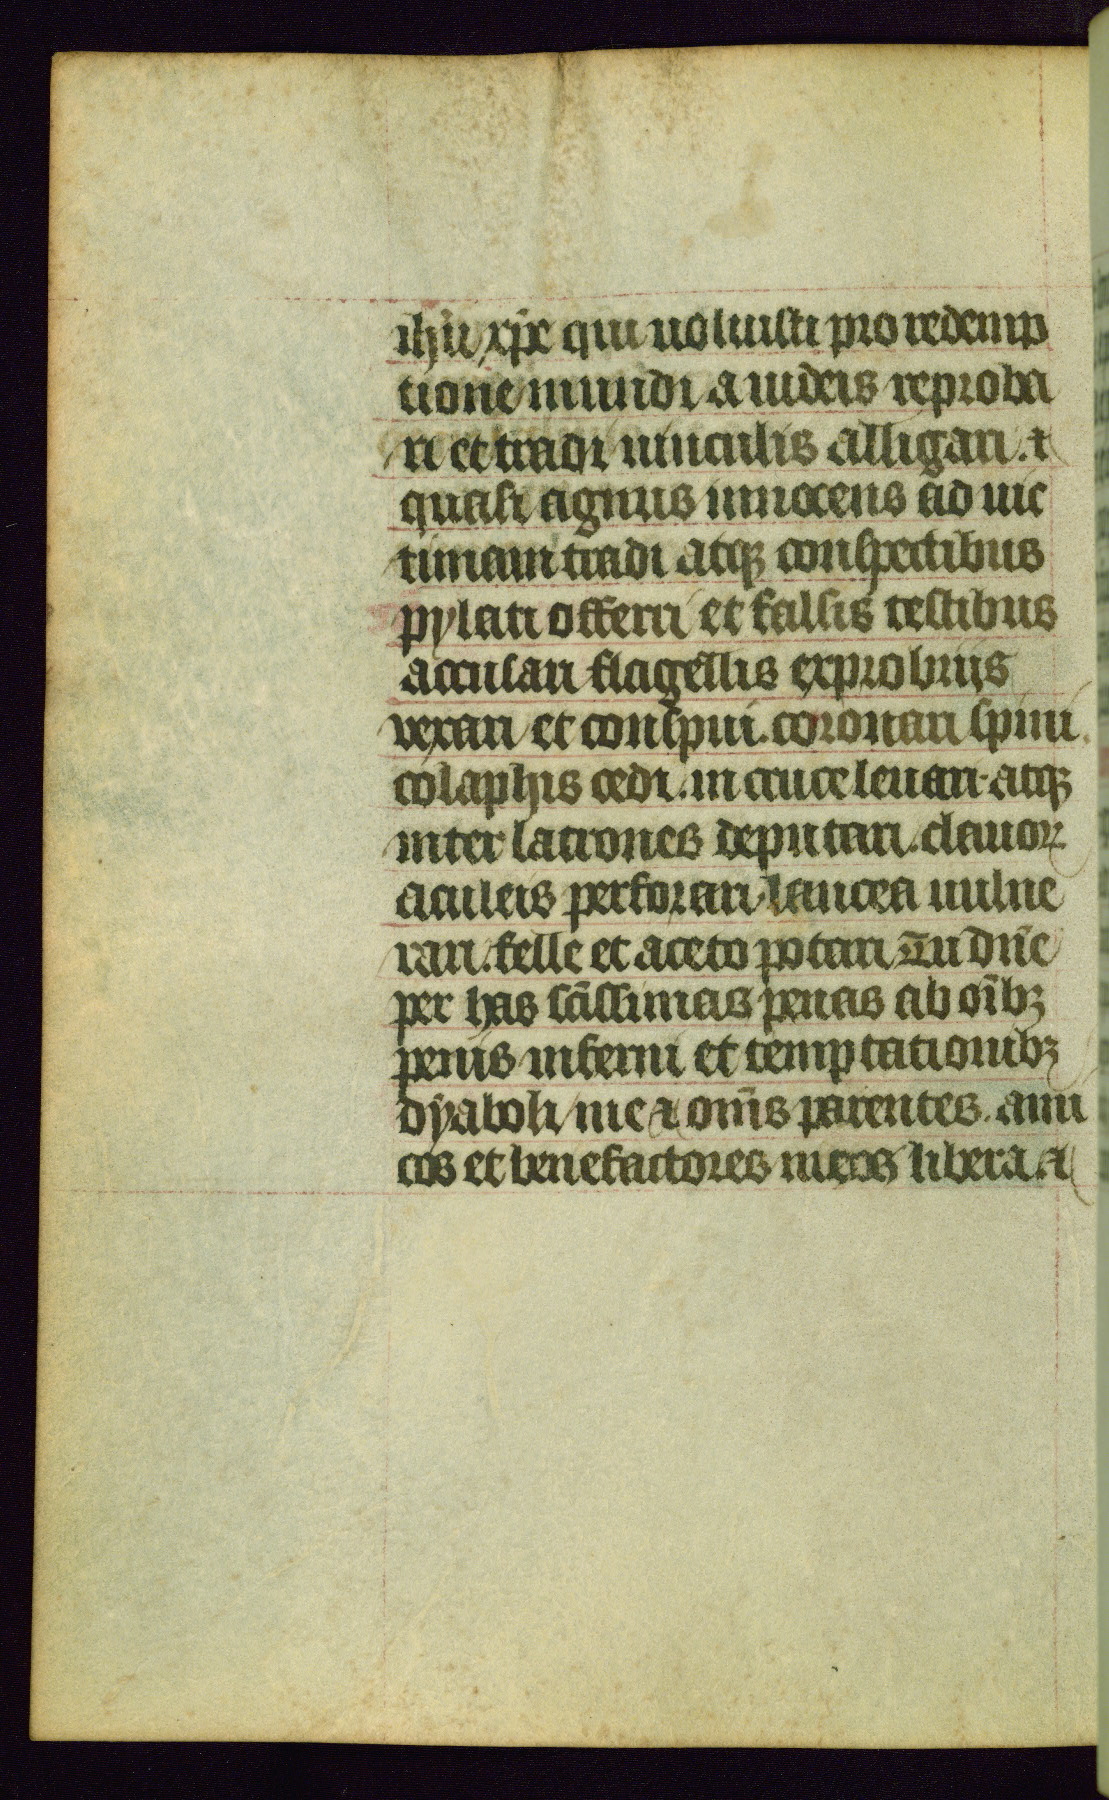 ihu xpe qui uoluisti pro redemp
tione mundi a iudeis reproba
ri et tradi uinculis alligari. ⁊
quasi agnus innocens ad uic
timam tradi atqꝫ conspectibus
pylati offerri et falsis testibus
accusari flagellis exprobrijs
vexari et conspui. coronari spini
colaphis cedi. in cruce leuari. atqꝫ
inter latrones deputari. clauoꝝ
aculeis perforari. lancea uulne
rari. felle et aceto potari Tu dn̄e
per has sc̄issimas penas ab oībꝫ
penis inferni et temptationibꝫ
dyaboli me ⁊ om̄s parentes. ami
cos et benefactores meos libera. A